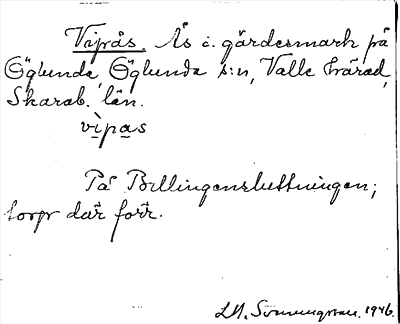 Viprås. Ås i gärdesmark på
Öglunda, Öglunda s:n, Valle härad,
Skarab. län.
vìpas
På Billingensluttningen;
torp där förr.
1946.